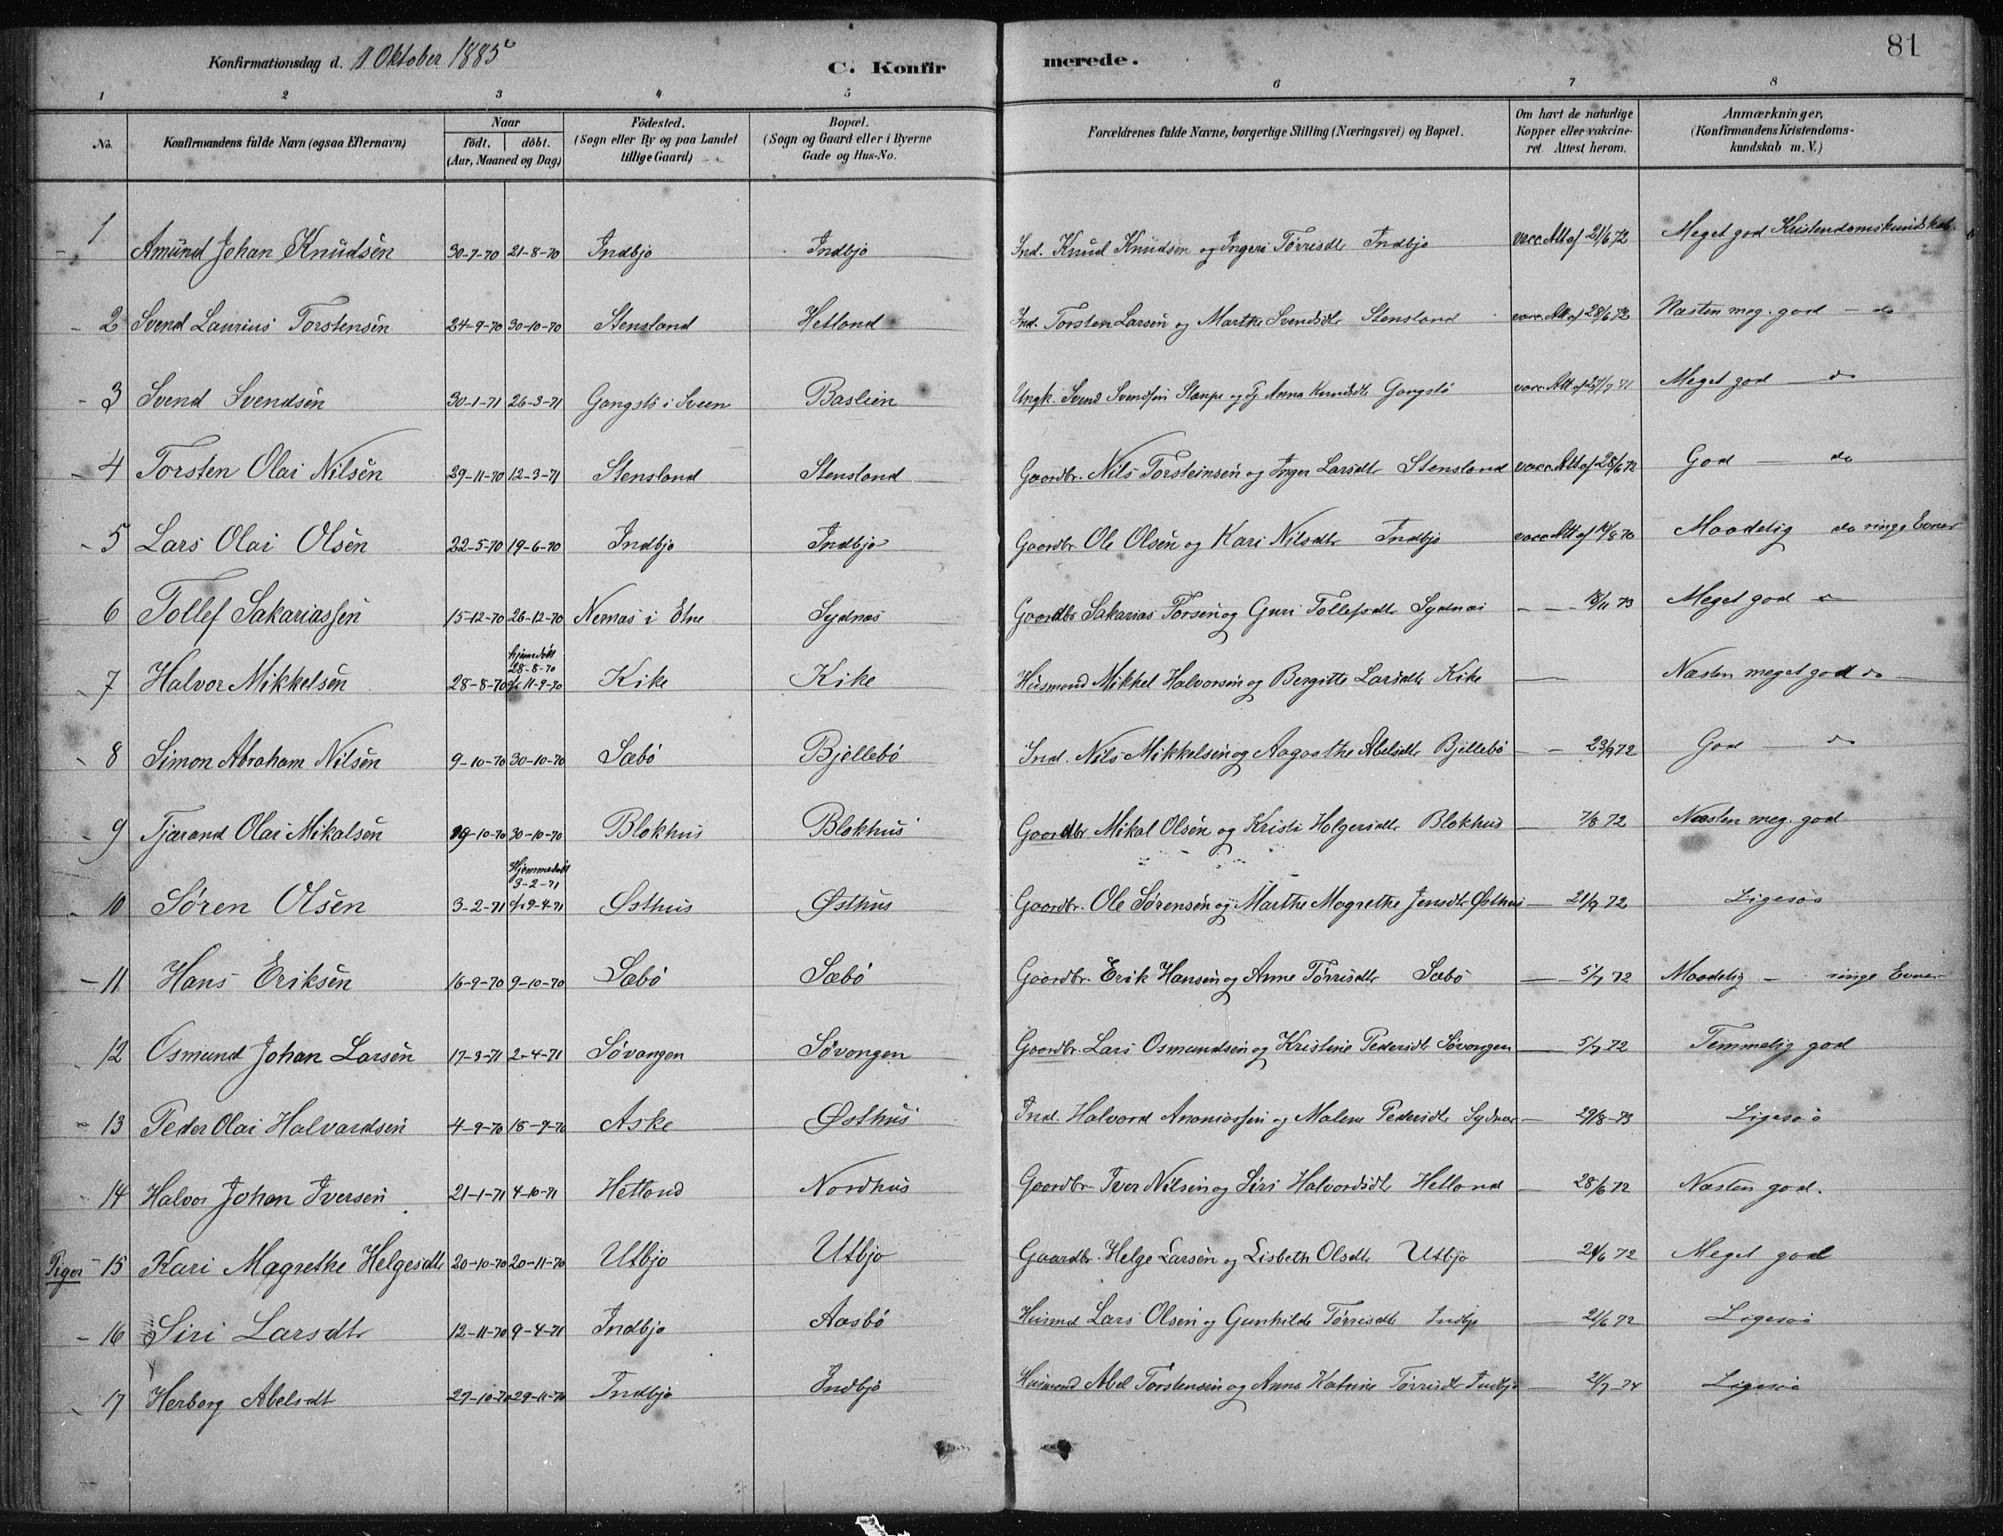 81
Konfirmationsdag d. 11 Oktober 1885
C. Konfirmerede.
1 2 3 4 5 6 7 8
No. Konfirmandens fulde Navn (ogsaa Efternavn) Naar födt. döbt. (Aar, Maaned og Dag) Födested. (Sogn eller By og paa Landet tillige Gaard) Bopæl. (Sogn og Gaard eller i Byerne Gade og Hus-No. Forældrenes fulde Navne, borgerlige Stilling (Næringsvei) og Bopæl. Om havt de naturlige Kopper eller vakcineret Attest herom. Anmærkninger, (Konfirmandens Kristendomskundskab m. V.)
1 Amund Johan Knudsen 30-7-70 21-8-70 Indbjo Indbjo Ind. Knud Knudsen og Ingeri Tørrisdtr Indbjo vacc. Att af 21/6 72 Meget god Kristendomskundskab
2 Svend Laurius Torstensen 24-9-70 30-10-70 Stensland Hetland Ind. Torsten Larsen og Marthe Svendsdtr Stensland vacc. Att af 28/6 72 Næsten meg. god — do
3 Svend Svendsen 30-1-71 26-3-71 Gangstö i Sveen Baslien Ungk. Svend Svendsen og Anna Knudsdtr Gangstö vacc. Att af 71 Meget god — do
4 Torsten Olai Nilsen 29-11-70 12-3-71 Stensland Stensland Gaardbr. Nils Torsteinsen og Inger Larsdtr Stensland vacc. Att af 28/6 72 God — do
5 Lars Olai Olsen 22-5-70 19-6-70 Indbjo Indbjo Gaardbr. Ole Olsen og Kari Nilsdtr Indbjo vacc. Att af 70 Maadelig do ringe Evner
6 Tollef Sakariassen 15-12-70 26-12-70 Nernæs i Etne Sydnæs Gaardbr Sakarias Torsen og Guri Tollefsdtr Sydnæs — — 73 Meget god do
7 Halvor Mikkelsen 28-8-70 hjemedöbt 28-8-70 11-9-70 Kike Kike Husmand Mikkel Halvorsen og Bergitte Larsdtr Kike — Næsten meget god do
8 Simon Abraham Nilsen 9-10-70 30-10-70 Sæbö Bjellebö Ind. Nils Mikkelsen og Aagothe Abelsdtr Bjellebö — — 23/9 72 God do
9 Tjærand Olai Mikalsen 10-70 30-10-70 Blokhus Blokhus Gaardbr Mikal Olsen og Kristi Holgersdtr Blokhus — 7/8 72 Næsten meg. god
10 Søren Olsen 3-2-71 Hjemmedöbt 3-2-71 9-4-71 Østhus Østhus Gaardbr. Ole Sørensen og Marthe Magrethe Jensdtr Østhus — 21/7 72 Ligesaa
11 Hans Eriksen 16-9-70 9-10-70 Sæbö Sæbö Gaardbr. Erik Hansen og Anne Tørrisdtr Sæbö — 5/7 72 Maadelig — ringe Evner
12 Osmund Johan Larsen 17-3-71 2-4-71 Søvangen Søvangen Gaardbr. Lars Osmundsen og Kristine Pedersdtr Søvangen — 5/7 72 Temmelig god
13 Peder Olai Halvardsen 4-9-70 18-9-70 Aske Østhus Ind. Halvard Ananiassen og Malene Pedersdtr Sydnæs — 29/8-73 Ligesaa
14 Halvor Johan Iversen 21-1-71 4-10-71 Hetland Nordhus Gaardbr Iver Nilsen og Siri Halvordsdtr Hetland — 28/6 72 Næsten god.
Piger 15 Kari Magrethe Helgesdtr 20-10-70 20-11-70 Utbjo Utbjo Gaardbr. Helge Larsen og Lisbeth Olsdtr Utbjo 21/6 72 Meget god
16 Siri Larsdtr 12-11-70 9-4-71 Indbjo Aasbö Husmd Lars Olsen og Gunhilde Tørrisdtr Indbjo — 21/6 72 Ligesaa
17 Herborg Abelsdt 27-10-70 29-11-70 Indbjo Indbjo Husmand Abel Torstensen og Anna Katrine Tørrisdtr Indbjo — 2/7-74 Ligesaa